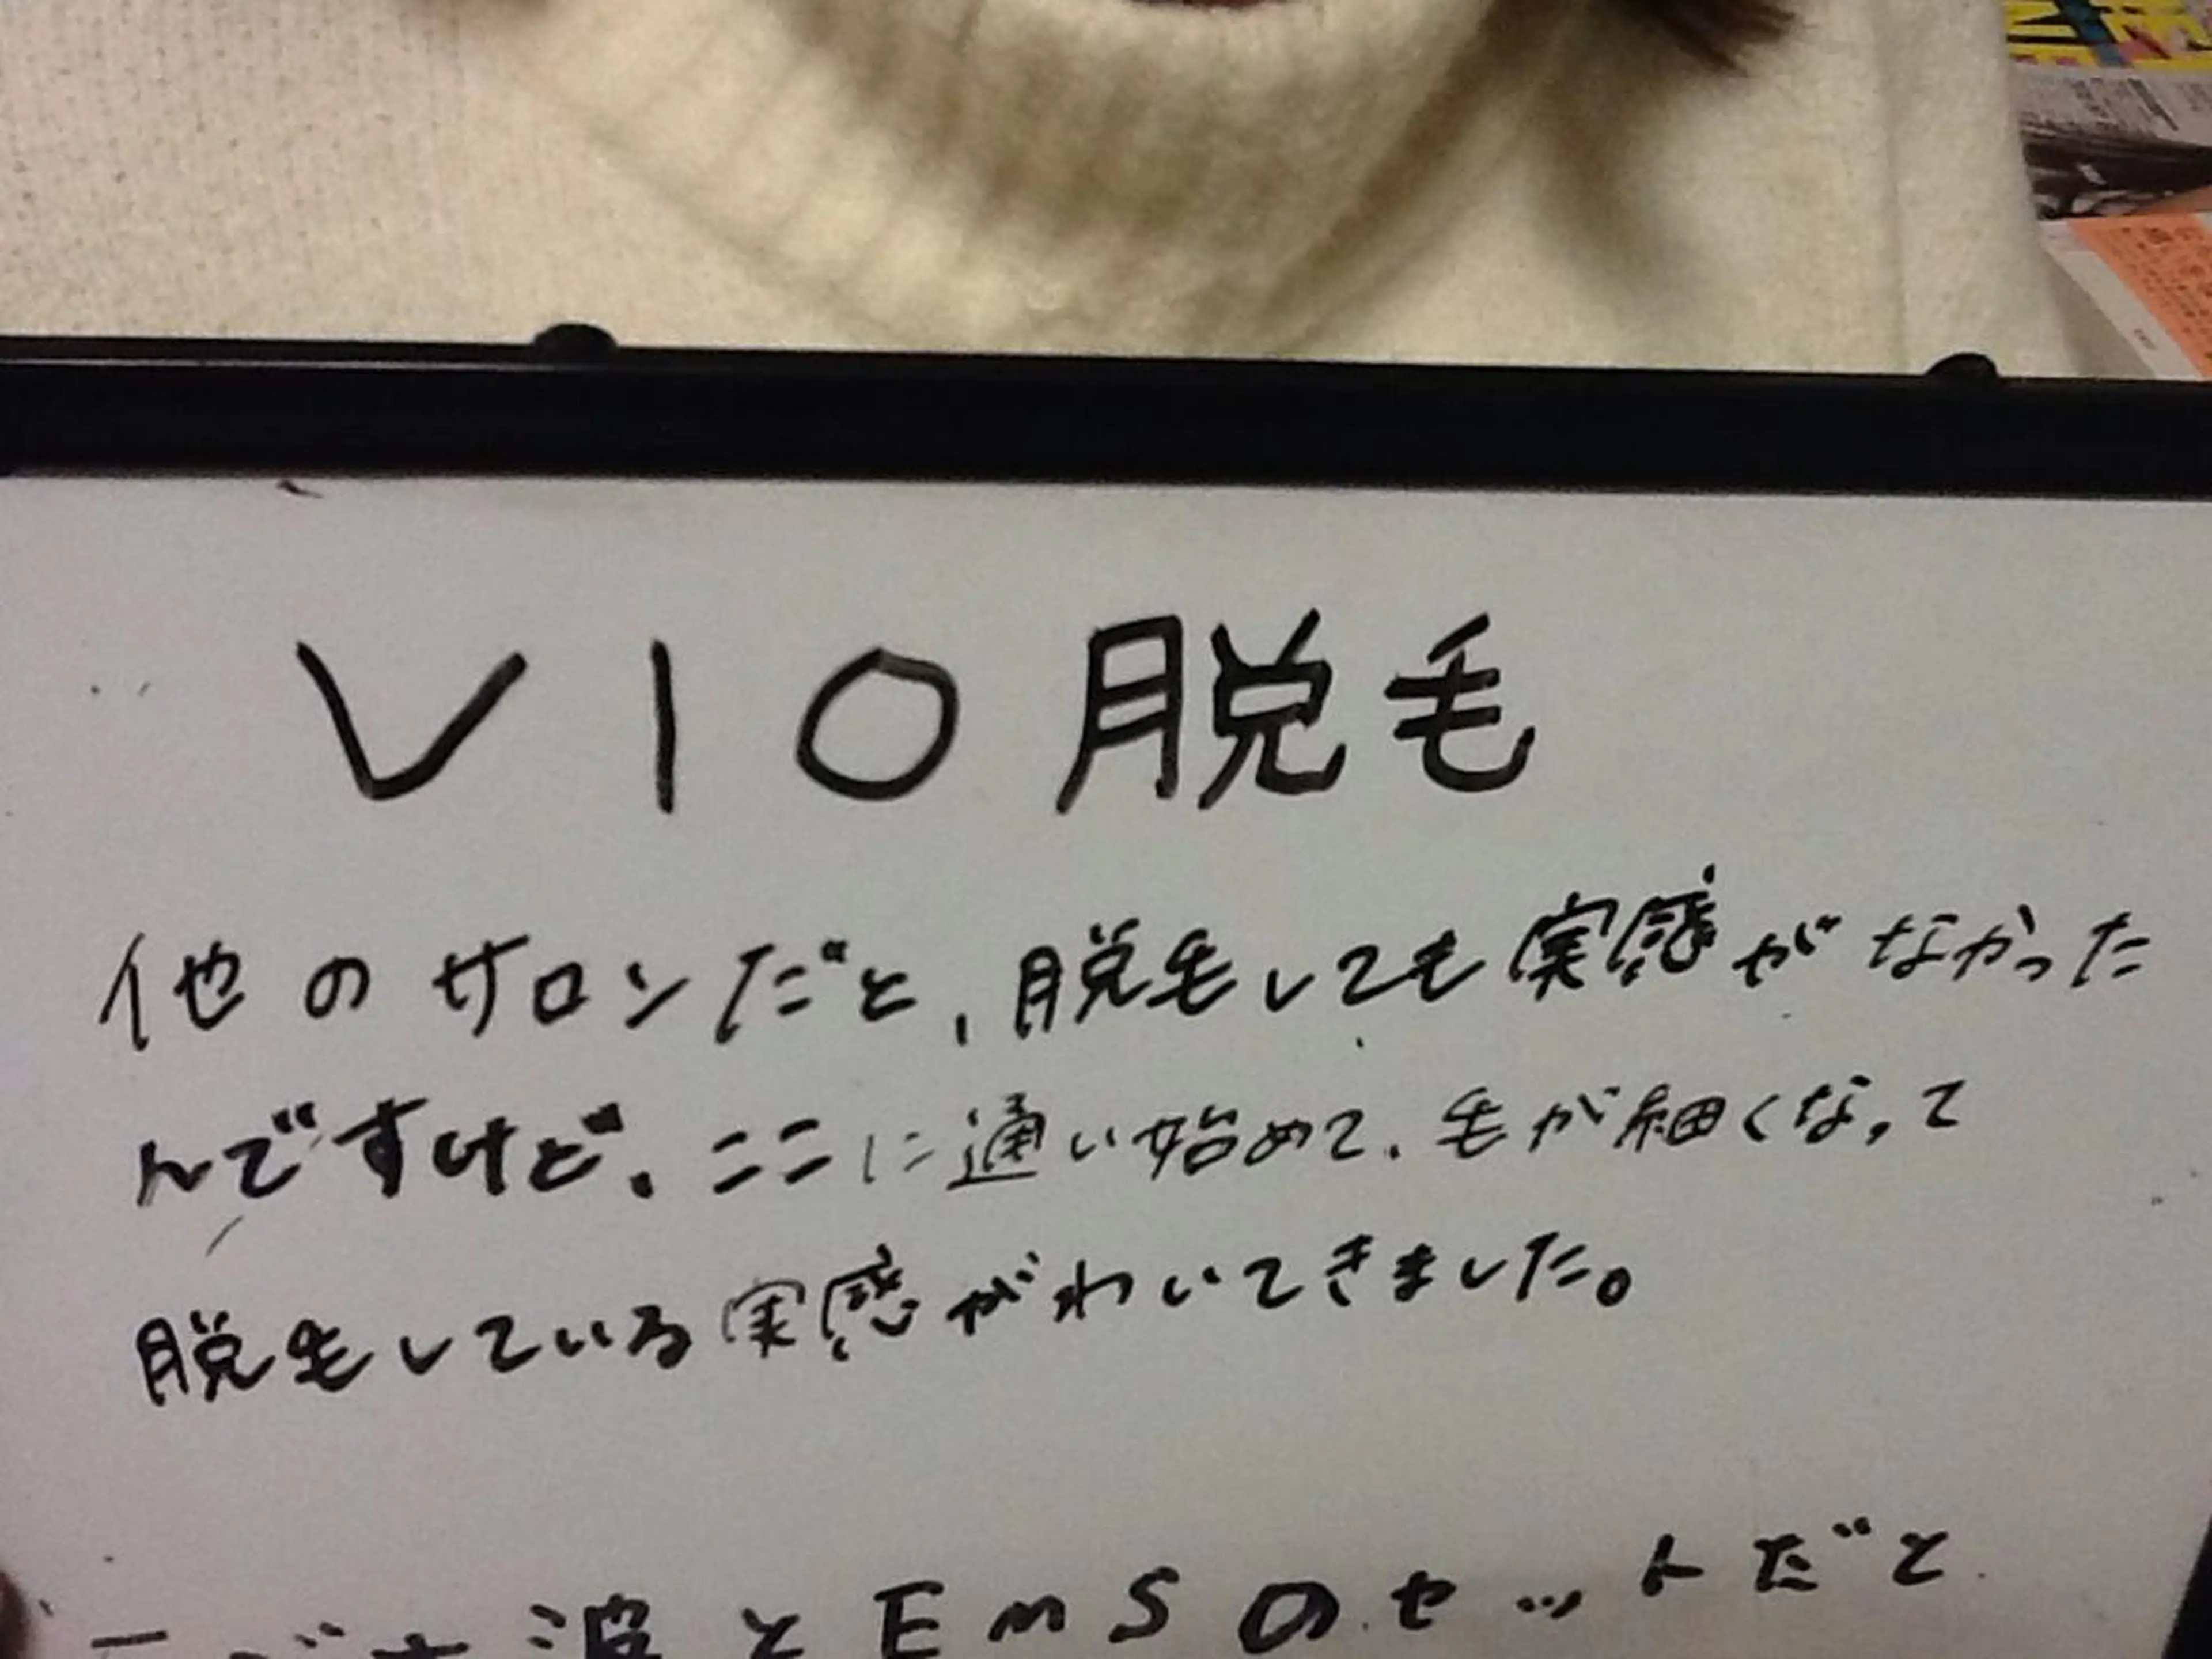 VIO脱毛
他のサロンだと、脱毛しても実感がなかった
んですけど、ここに通い始めて、毛が細くなって
脱毛している実感がわいてきました。
波とEmSのセットだと